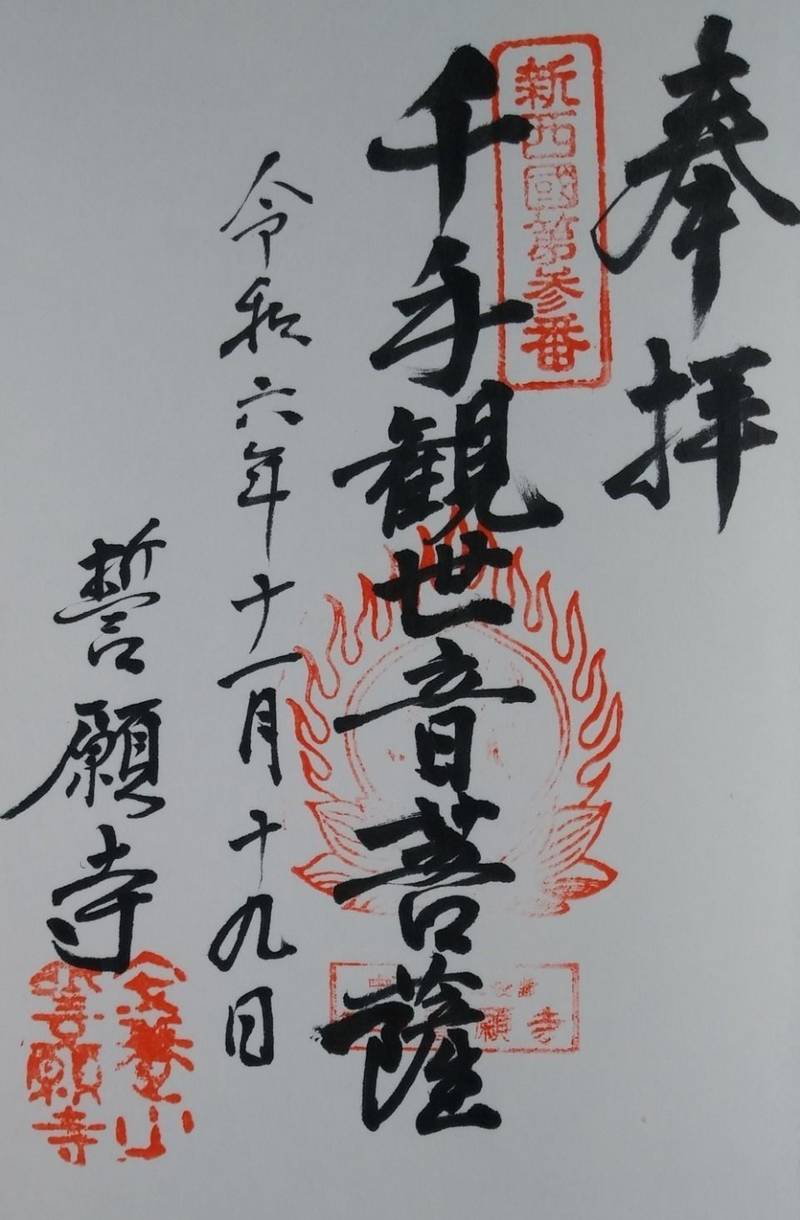 奉拝
新西國第参番
千手観世音菩薩
令和六年十一月十九日
誓願寺
誓願寺
願寺